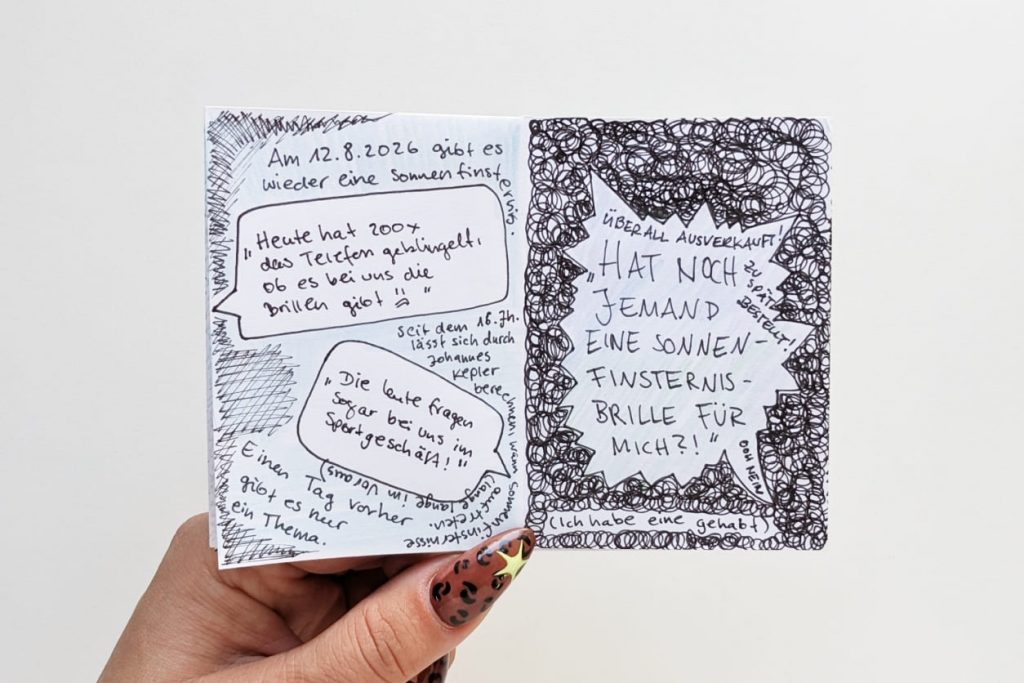 Am 12.8.2026 gibt es
wieder eine Sonnenfinsternis.
„Heute hat 200x
das Telefon geklingelt,
ob es bei uns die
Brillen gibt "
seit dem 16. Jh.
lässt sich durch
Johannes
Kepler
berechnen, wann
Sonnenfinsternisse
auftreten.
(lange lange im Voraus)
„Die Leute fragen
sogar bei uns im
Sportgeschäft!"
Einen Tag vorher
gibt es nur
ein Thema.
ÜBERALL AUSVERKAUFT!
„HAT NOCH
JEMAND
EINE SONNEN-
FINSTERNIS-
BRILLE FÜR
MICH?!"
ZU
SPÄT
BESTELLT!
OOH NEIN
(Ich habe eine gehabt)